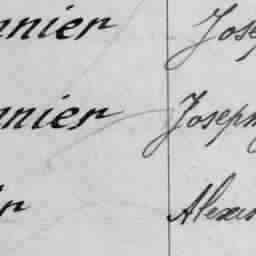 nnier Jose
nnier Joseph
ir Alexan